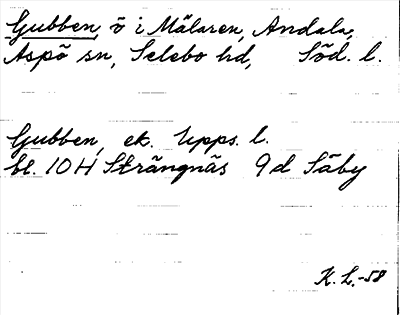 Gubben, ö i Mälaren, Andala,
Aspö sn, Selebo hd, Söd. l.
Gubben, ek. Upps. l.
bl. 10 H Strängnäs 9 d Säby
K. L. -58